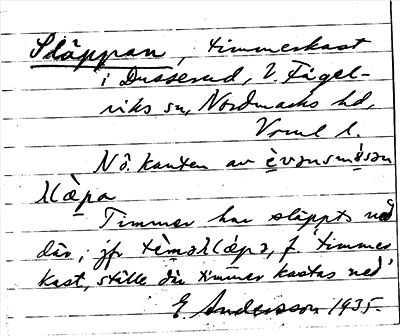 Släppan, timmerkast
i Dusserud, V. Fågel-
viks sn, Nordmarks hd,
Vrml l.
Nö. kanten av
Timmer har släppts ned
där; jfr f. 'timmer
kast, ställe där timmer kastas ned'
E Andersson 1935.